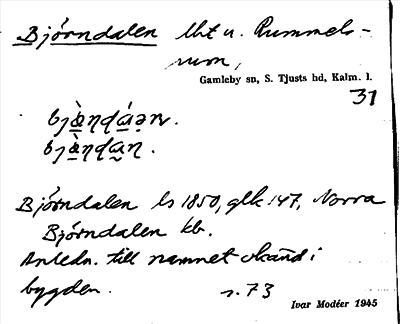 Björndalen lht u. Rummels-
rum,
Gamleby sn, S. Tjusts hd, Kalm. l.
31
Björndalen ls 1850, glk 147, Norra
Björndalen kb.
Anledn. till namnet okänd i
bygden. s. 73
Ivar Modéer 1945